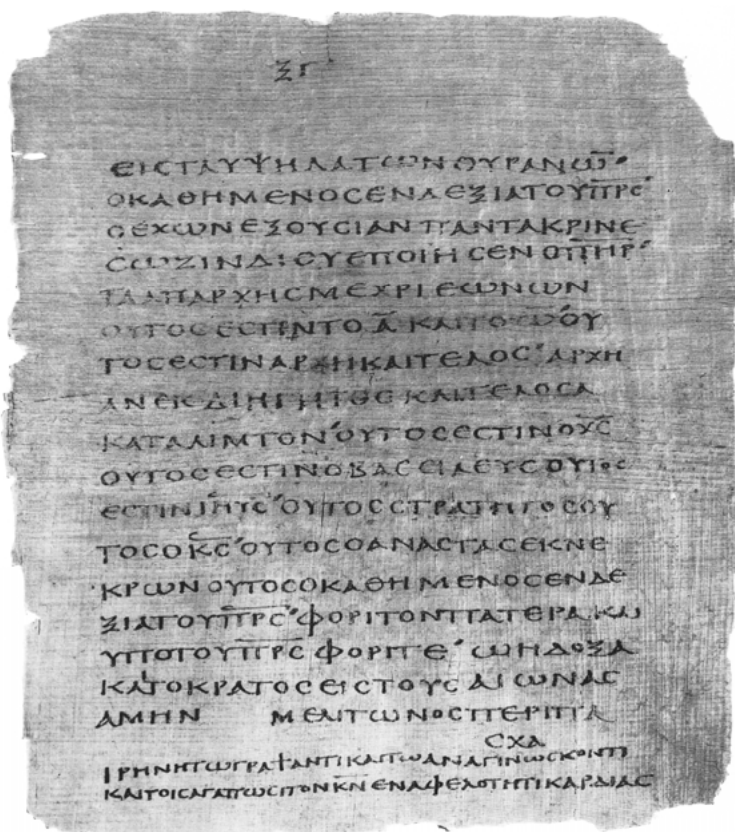 ΞΓ
ΕΙΣ ΤΑ ΥΨΗΛΑ ΤΩΝ ΟΥΡΑΝΩ̅
Ο ΚΑΘΗΜΕΝΟΣ ΕΝ ΔΕΞΙΑ ΤΟΥ Π̅Ρ̅Σ̅
Ο ΕΧΩΝ ΕΞΟΥΣΙΑΝ ΠΑΝΤΑ ΚΡΙΝΕ
ΣΩΖΙΝ ΔΙ ΟΥ ΕΠΟΙΗΣΕΝ Ο Π̅Η̅Ρ̅
ΤΑ ΑΠ ΑΡΧΗΣ ΜΕΧΡΙ ΕΩΝΩΝ
ΟΥΤΟΣ ΕΣΤΙΝ ΤΟ Α̅ ΚΑΙ ΤΟ Ω ΟΥ
ΤΟΣ ΕΣΤΙΝ ΑΡΧΗ ΚΑΙ ΤΕΛΟΣ ΑΡΧΗ
ΑΝΕΚΔΙΗΓΗΤΟΣ ΚΑΙ ΤΕΛΟΣ Α
ΚΑΤΑΛΙΜΤΟΝ ΟΥΤΟΣ ΕΣΤΙΝ Ο Χ̅Σ̅
ΟΥΤΟΣ ΕΣΤΙΝ Ο ΒΑΣΕΙΛΕΥΣ ΟΥΤΟΣ
ΕΣΤΙΝ Ι̅Η̅Υ̅Σ̅ ΟΥΤΟΣ ΣΤΡΑΤΗΓΟΣ ΟΥ
ΤΟΣ Ο Κ̅Σ̅ ΟΥΤΟΣ Ο ΑΝΑΣΤΑΣ ΕΚ ΝΕ
ΚΡΩΝ ΟΥΤΟΣ Ο ΚΑΘΗΜΕΝΟΣ ΕΝ ΔΕ
ΞΙΑ ΤΟΥ Π̅Ρ̅Σ̅ ΦΟΡΙ ΤΟΝ ΠΑΤΕΡΑ ΚΑΙ
ΥΠΟ ΤΟΥ Π̅Ρ̅Σ̅ ΦΟΡΙΤΕ Ω Η ΔΟΞΑ
ΚΑΙ ΤΟ ΚΡΑΤΟΣ ΕΙΣ ΤΟΥΣ ΑΙΩΝΑΣ
ΑΜΗΝ ΜΕΛΙΤΩΝΟΣ ΠΕΡΙ ΠΑ
ΣΧΑ
ΙΡΗΝΗ ΤΩ ΓΡΑΨΑΝΤΙ ΚΑΙ ΤΩ ΑΝΑΓΙΝΩΣΚΟΝΤΙ
ΚΑΙ ΤΟΙΣ ΑΓΑΠΩΣΙ ΤΟΝ Κ̅Ν̅ ΕΝ ΑΦΕΛΟΤΗΤΙ ΚΑΡΔΙΑΣ